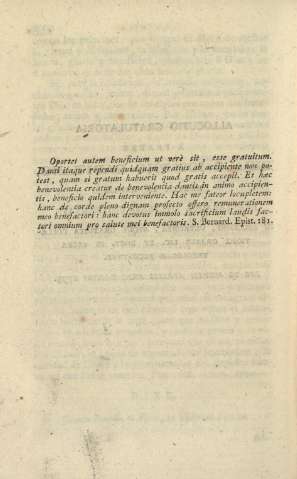 Oportet autem beneficium ut verè sit, esse gratuitum.
Danti itaque rependi quidquam gratius ab accipiente non po-
test, quam si gratum habuerit quod gratis accepit. Et hæc
benevolentia creatur de benevolentia dantis in animo accipien-
tis, beneficio quidem interveniente. Hac me fateor locupletem:
hanc de corde pleno dignam profecto offero remunerationem
meo benefactori: hanc devotus immolo sacrificium laudis fac-
tori omnium pro salute mei benefactoris. S. Bernard. Epist. 181.